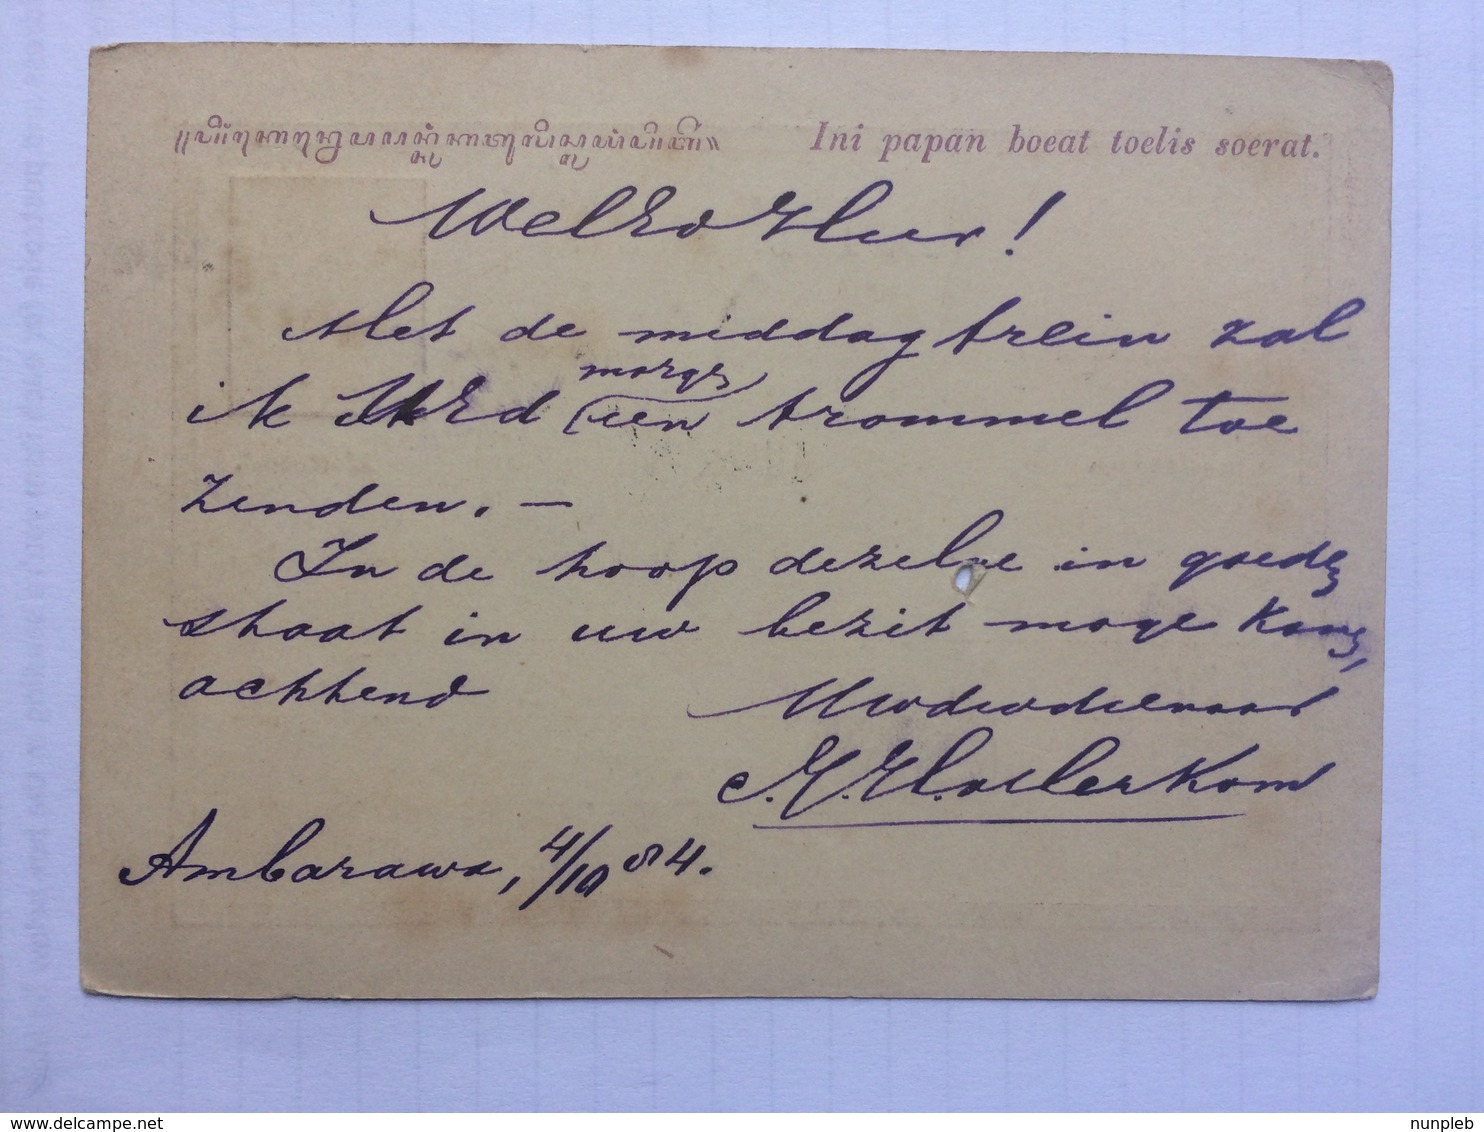 Ini papan boeat toelis soerat.
WelEd Heer!
Met de middagtrein zal
morgn
ik UEd een trommel toe
zenden. —
In de hoop dezelve in goede
staat in uw bezit moge komen,
achtend
Uwdwdienaar
Ambarawa, 4/10 84.
delcampe.net
nunpleb